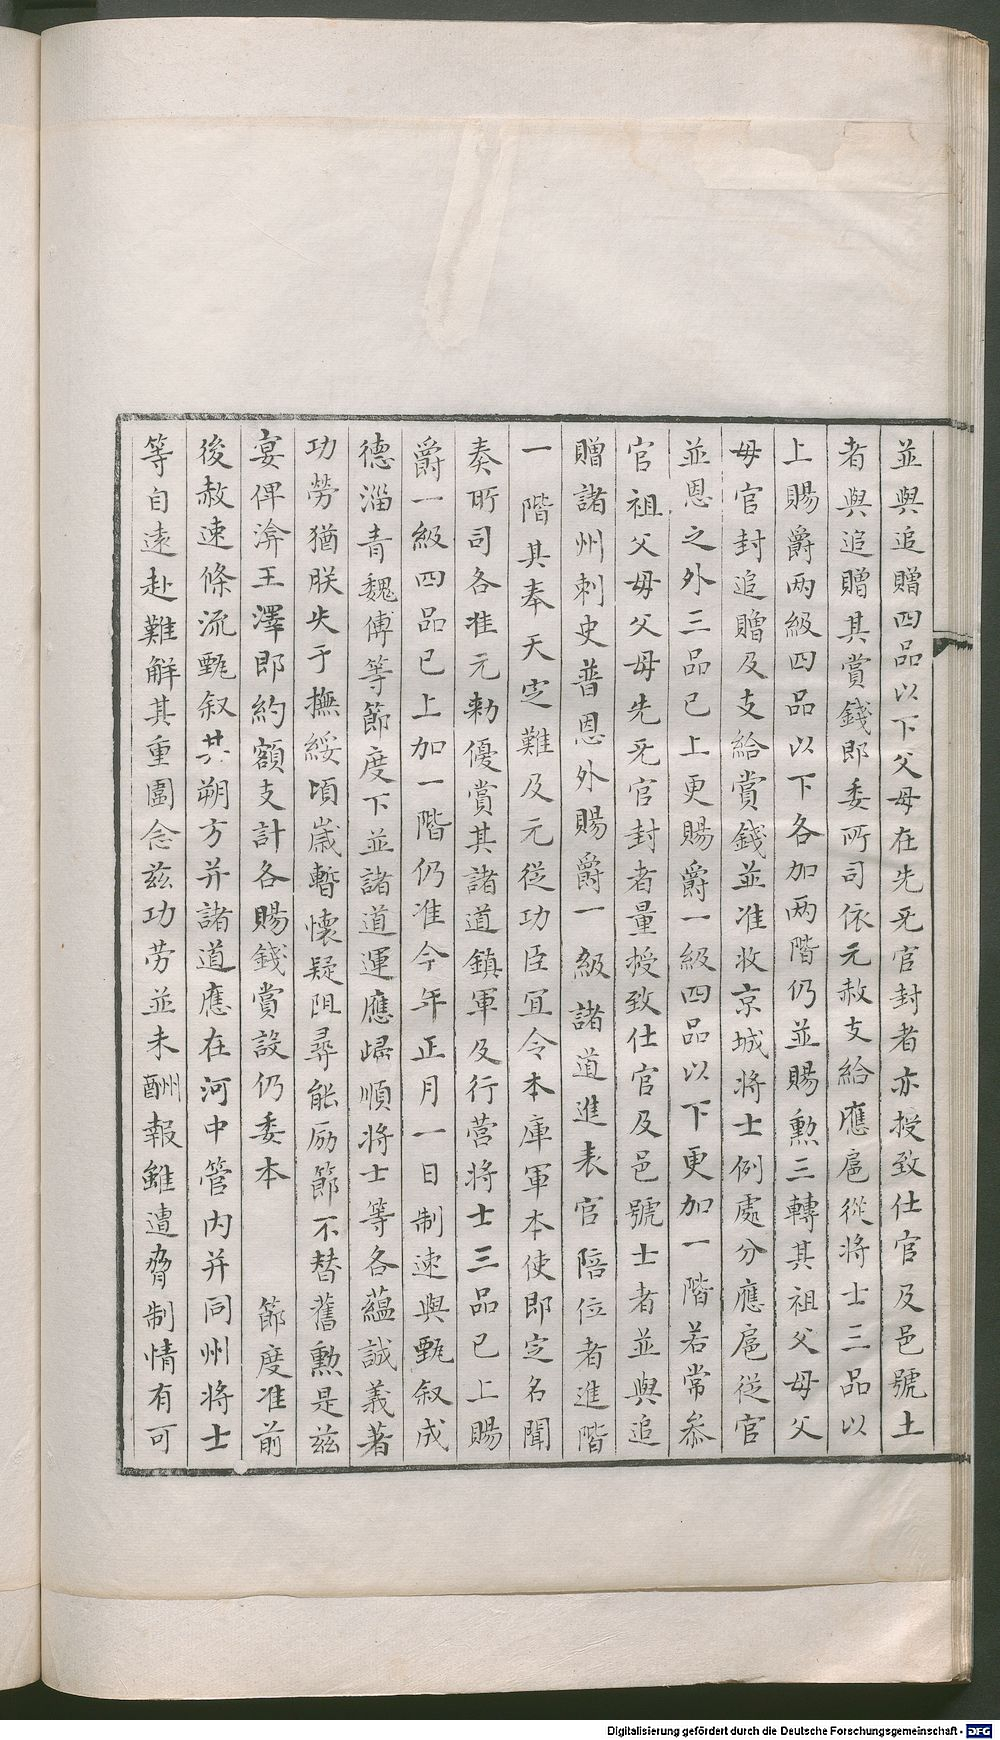 並與追贈四品以下父母在先無官封者亦授致仕官及邑號土
者與追贈其賞錢郎委所司依元赦支給應扈從將士三品以
上賜爵两級四品以下各加两階仍並賜勲三轉其祖父母父
母官封追贈及支給賞錢並准收京城將士例處分應扈從官
並恩之外三品已上更賜爵一級四品以下更加一階若常叅
官祖父母父母先無官封者量授致仕官及邑號士者並與追
贈諸州刺史普恩外賜爵一級諸道進表官陪位者進階
一階其奉天定難及元從功臣冝令本庫軍本使即定名聞
奏所司各准元勑優賞其諸道鎮軍及行营將士三品已上賜
爵一級四品已上加一階仍准今年正月一日制速與甄叙成
德淄青魏博等節度下並諸道運應歸順將士等各藴誠義著
功勞猶朕失于撫綏頃歳暫懷疑阻尋能励節不替舊勲是兹
宴俾渰王澤即約額支計各賜錢賞設仍委本 節度准前
後赦速條流甄叙其朔方并諸道應在河中管内并同州將士
等自遠赴難解其重圍念兹功劳並未酬報雖遭脅制情有可
Digitalisierung gefördert durch die Deutsche Forschungsgemeinschaft - DFG